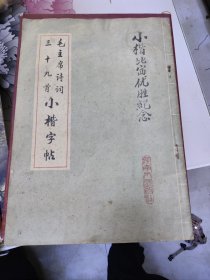 小楷比赛优胜纪念
毛主席诗词
三十九首小楷字帖